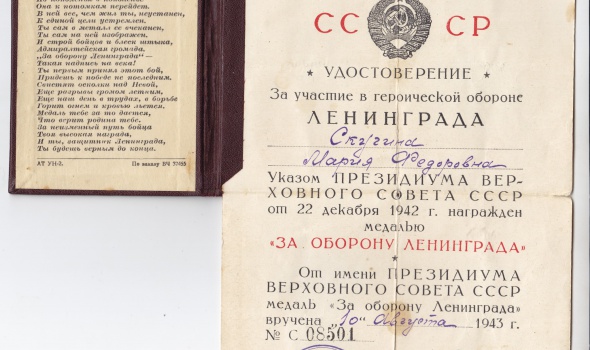 Она к потомкам перейдет.
В ней все, чем жил ты, неустанен,
К единой цели устремлен.
Ты сам в металл ее вчеканен,
Ты сам на ней изображен.
И строй бойцов и блеск штыка,
Адмиралтейская громада.
„За оборону Ленинграда“—
Такая надпись на века!
Ты первым принял этот бой,
Придешь к победе не последним.
Свистят осколки над Невой,
Еще разрывы громом летним,
Еще наш день в трудах, в борьбе
Горит огнем и кровью льется.
Медаль тебе за то дается,
Что верит родина тебе.
За неизменный путь бойца
Твоя высокая награда,
И ты, защитник Ленинграда,
Ты будешь верным до конца.
АТ УН-2. По заказу ВЧ 57465
СССР
УДОСТОВЕРЕНИЕ
За участие в героической обороне
ЛЕНИНГРАДА
Мария Федоровна
Указом ПРЕЗИДИУМА ВЕР-
ХОВНОГО СОВЕТА СССР
от 22 декабря 1942 г. награжден
медалью
«ЗА ОБОРОНУ ЛЕНИНГРАДА»
От имени ПРЕЗИДИУМА
ВЕРХОВНОГО СОВЕТА СССР
медаль «За оборону Ленинграда»
вручена „10“ Августа 1943 г.
№ С 08501